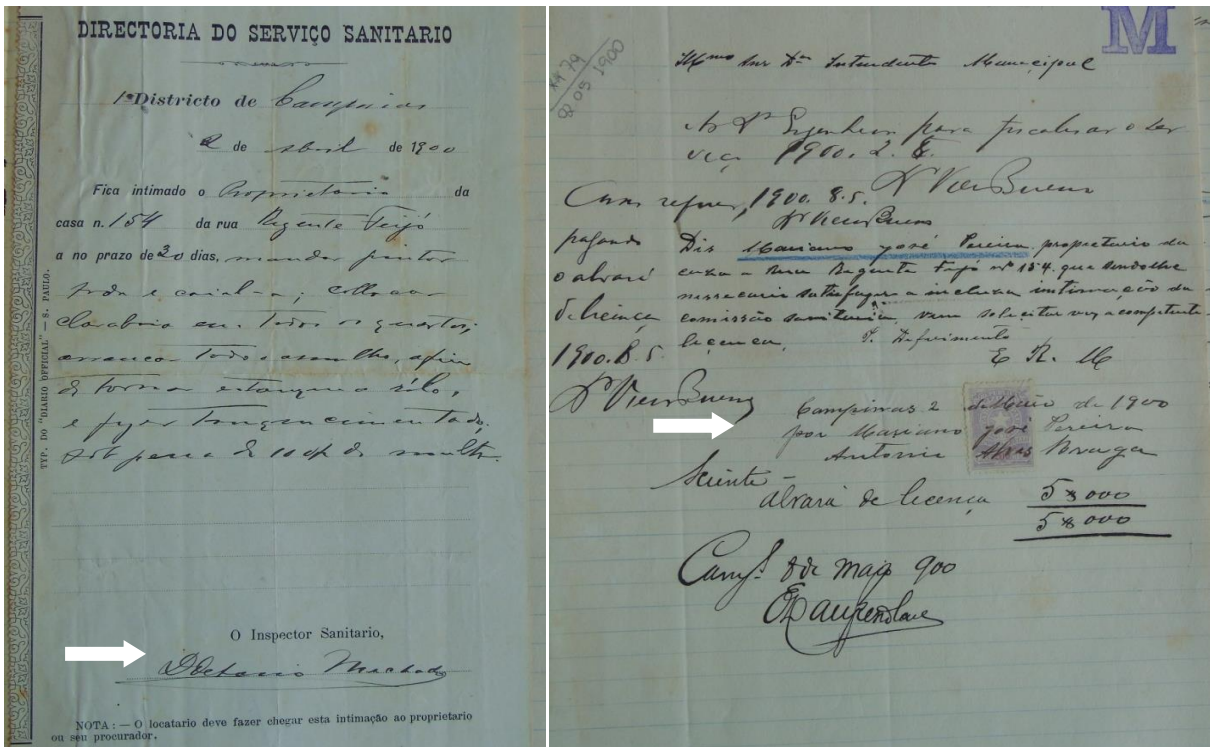 DIRECTORIA DO SERVIÇO SANITARIO
1º Districto de Campinas
2 de Abril de 1900
Fica intimado o Proprietario da
casa n. 154 da rua Regente Feijó
a no prazo de 30 dias, mandar pintar
toda e caial-a; collocar
claraboia em todos os quartos;
arrancar todo o assoalho, afim
de tornar estanque o sólo,
e fazer tanque cimentado,
sob pena de 100$ de multa.
O Inspector Sanitario,
Dr Octavio Machado
NOTA: — O locatario deve fazer chegar esta intimação ao proprietario
ou seu procurador.
TYP. DO "DIARIO OFFICIAL" — S. PAULO.
M
1900
Illmo Snr Dr Intendente Municipal
Ao Dr Engenheiro para fiscalisar o ser
viço 1900. 2. 5.
Dr Vieira Bueno
Como requer, 1900. 8. 5.
Dr Vieira Bueno
pagando
o alvará
de licença
1900. 8. 5.
Dr Vieira Bueno
Diz Mariano José Pereira, propietario da
caza a Rua Regente Feijó nº 154, que sendo lhe
nessecario satisfazer a incluza intimação da
comissão sanitaria, vem solicitar a competente
licença,
P. Deferimento
E R. M
Campinas 2 de Maio de 1900
por Mariano José Pereira
Antonio Alves Braga
Sciente
alvará de licença 5$000
5$000
Camps. 8 de Maio 900